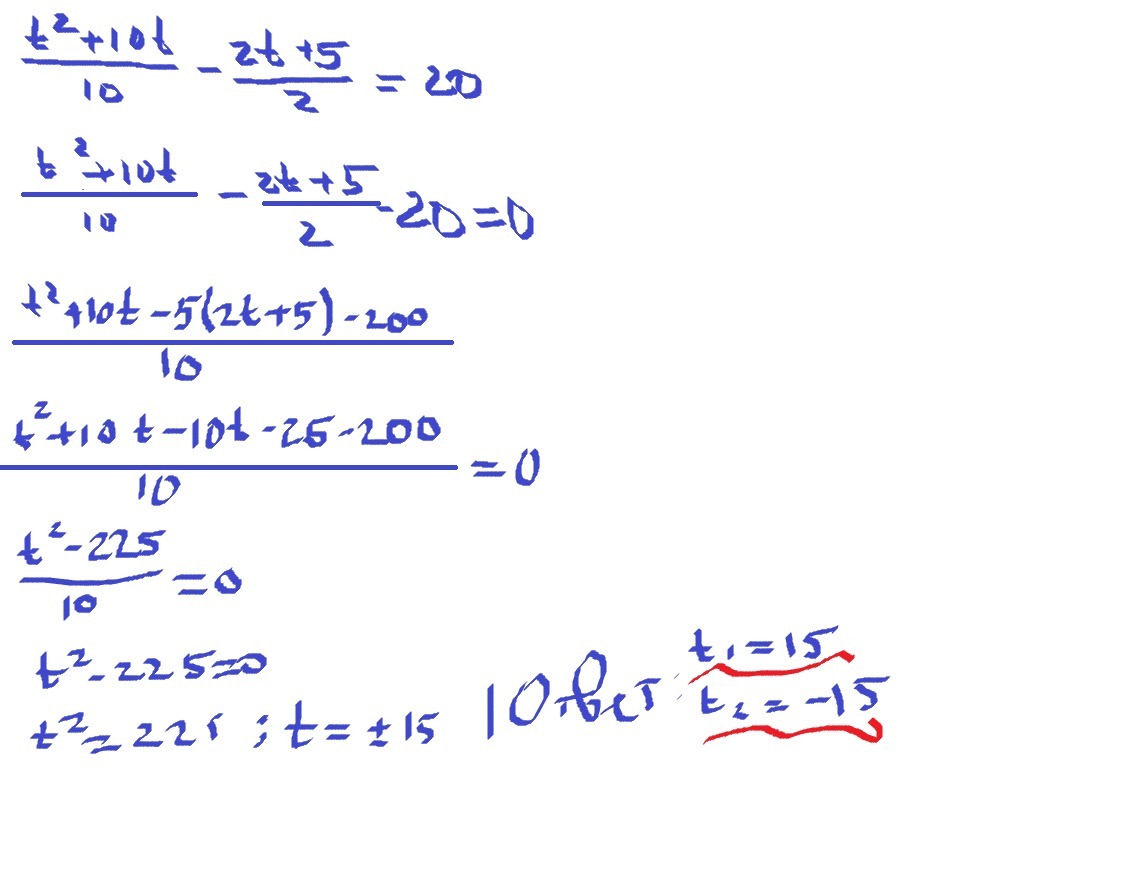 (t²+10t)/10 - (2t+5)/2 = 20
(t²+10t)/10 - (2t+5)/2 - 20 = 0
(t²+10t-5(2t+5)-200)/10
(t²+10t-10t-25-200)/10 = 0
(t²-225)/10 = 0
t²-225=0
t²=225 ; t=±15
t₁=15
t₂=-15